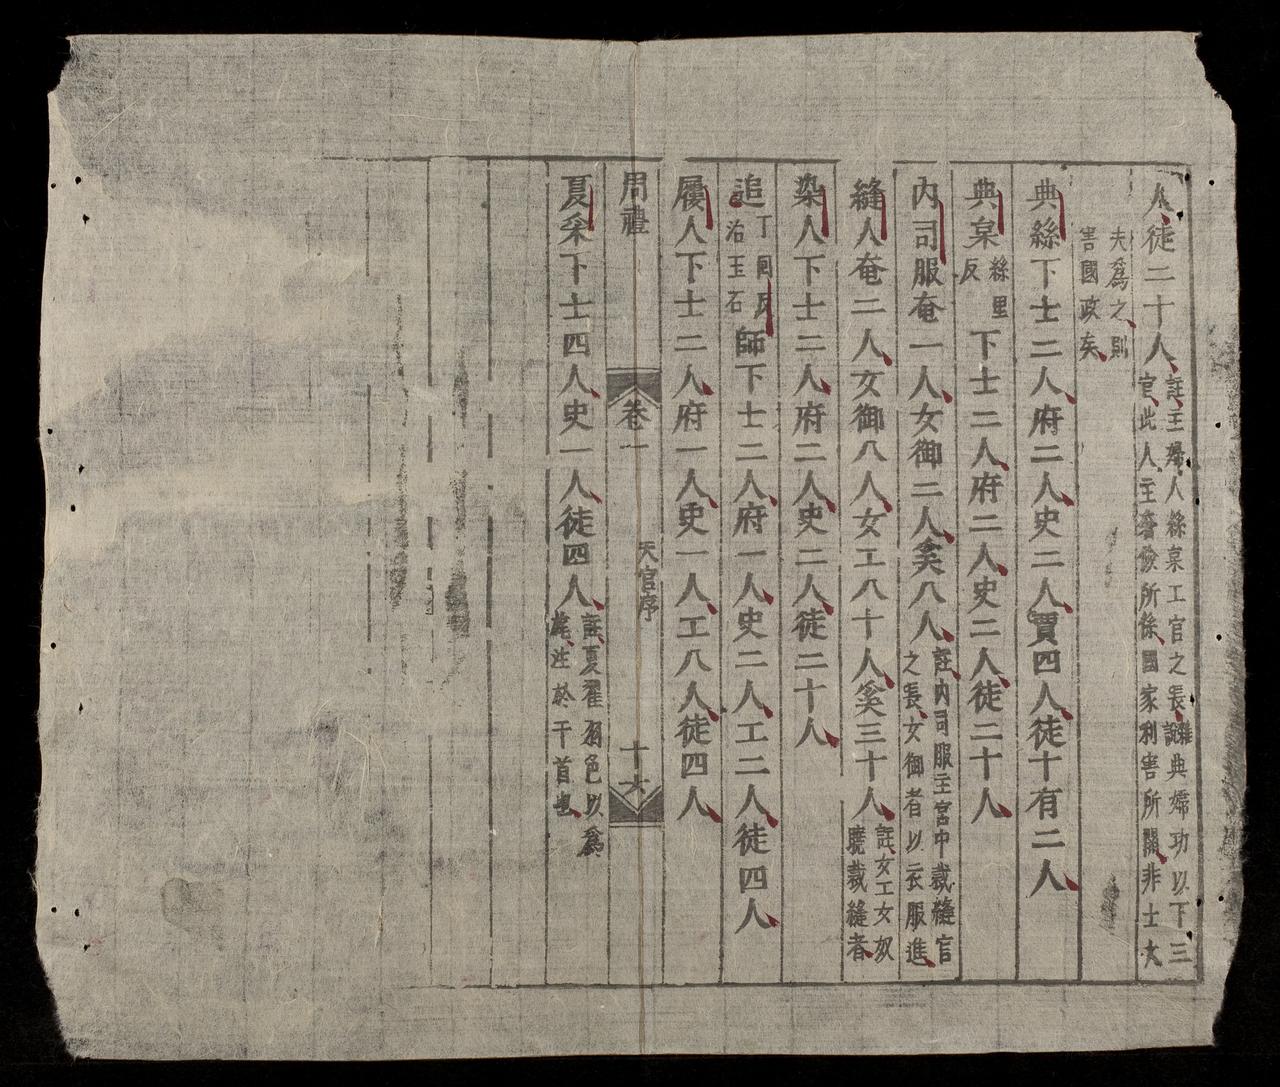 人徒二十人註主婦人絲枲工官之長雜說典婦功以下三
官此人主奢儉所係國家利害所關非士大
夫爲之則
害國政矣
典絲下士二人府二人史二人賈四人徒十有二人
典枲絲里反下士二人府二人史二人徒二十人
內司服奄一人女御二人奚八人註內司服主宮中裁縫官
之長女御者以衣服進
縫人奄二人女御八人女工八十人奚三十人註女工女奴
曉裁縫者
染人下士二人府二人史二人徒二十人
追丁囘反治玉石師下士二人府一人史二人工二人徒四人
履人下士二人府一人史一人工八人徒四人
周禮 卷一 天官序 十六
夏采下士四人史一人徒四人註夏翟羽色以爲
旄注於干首也